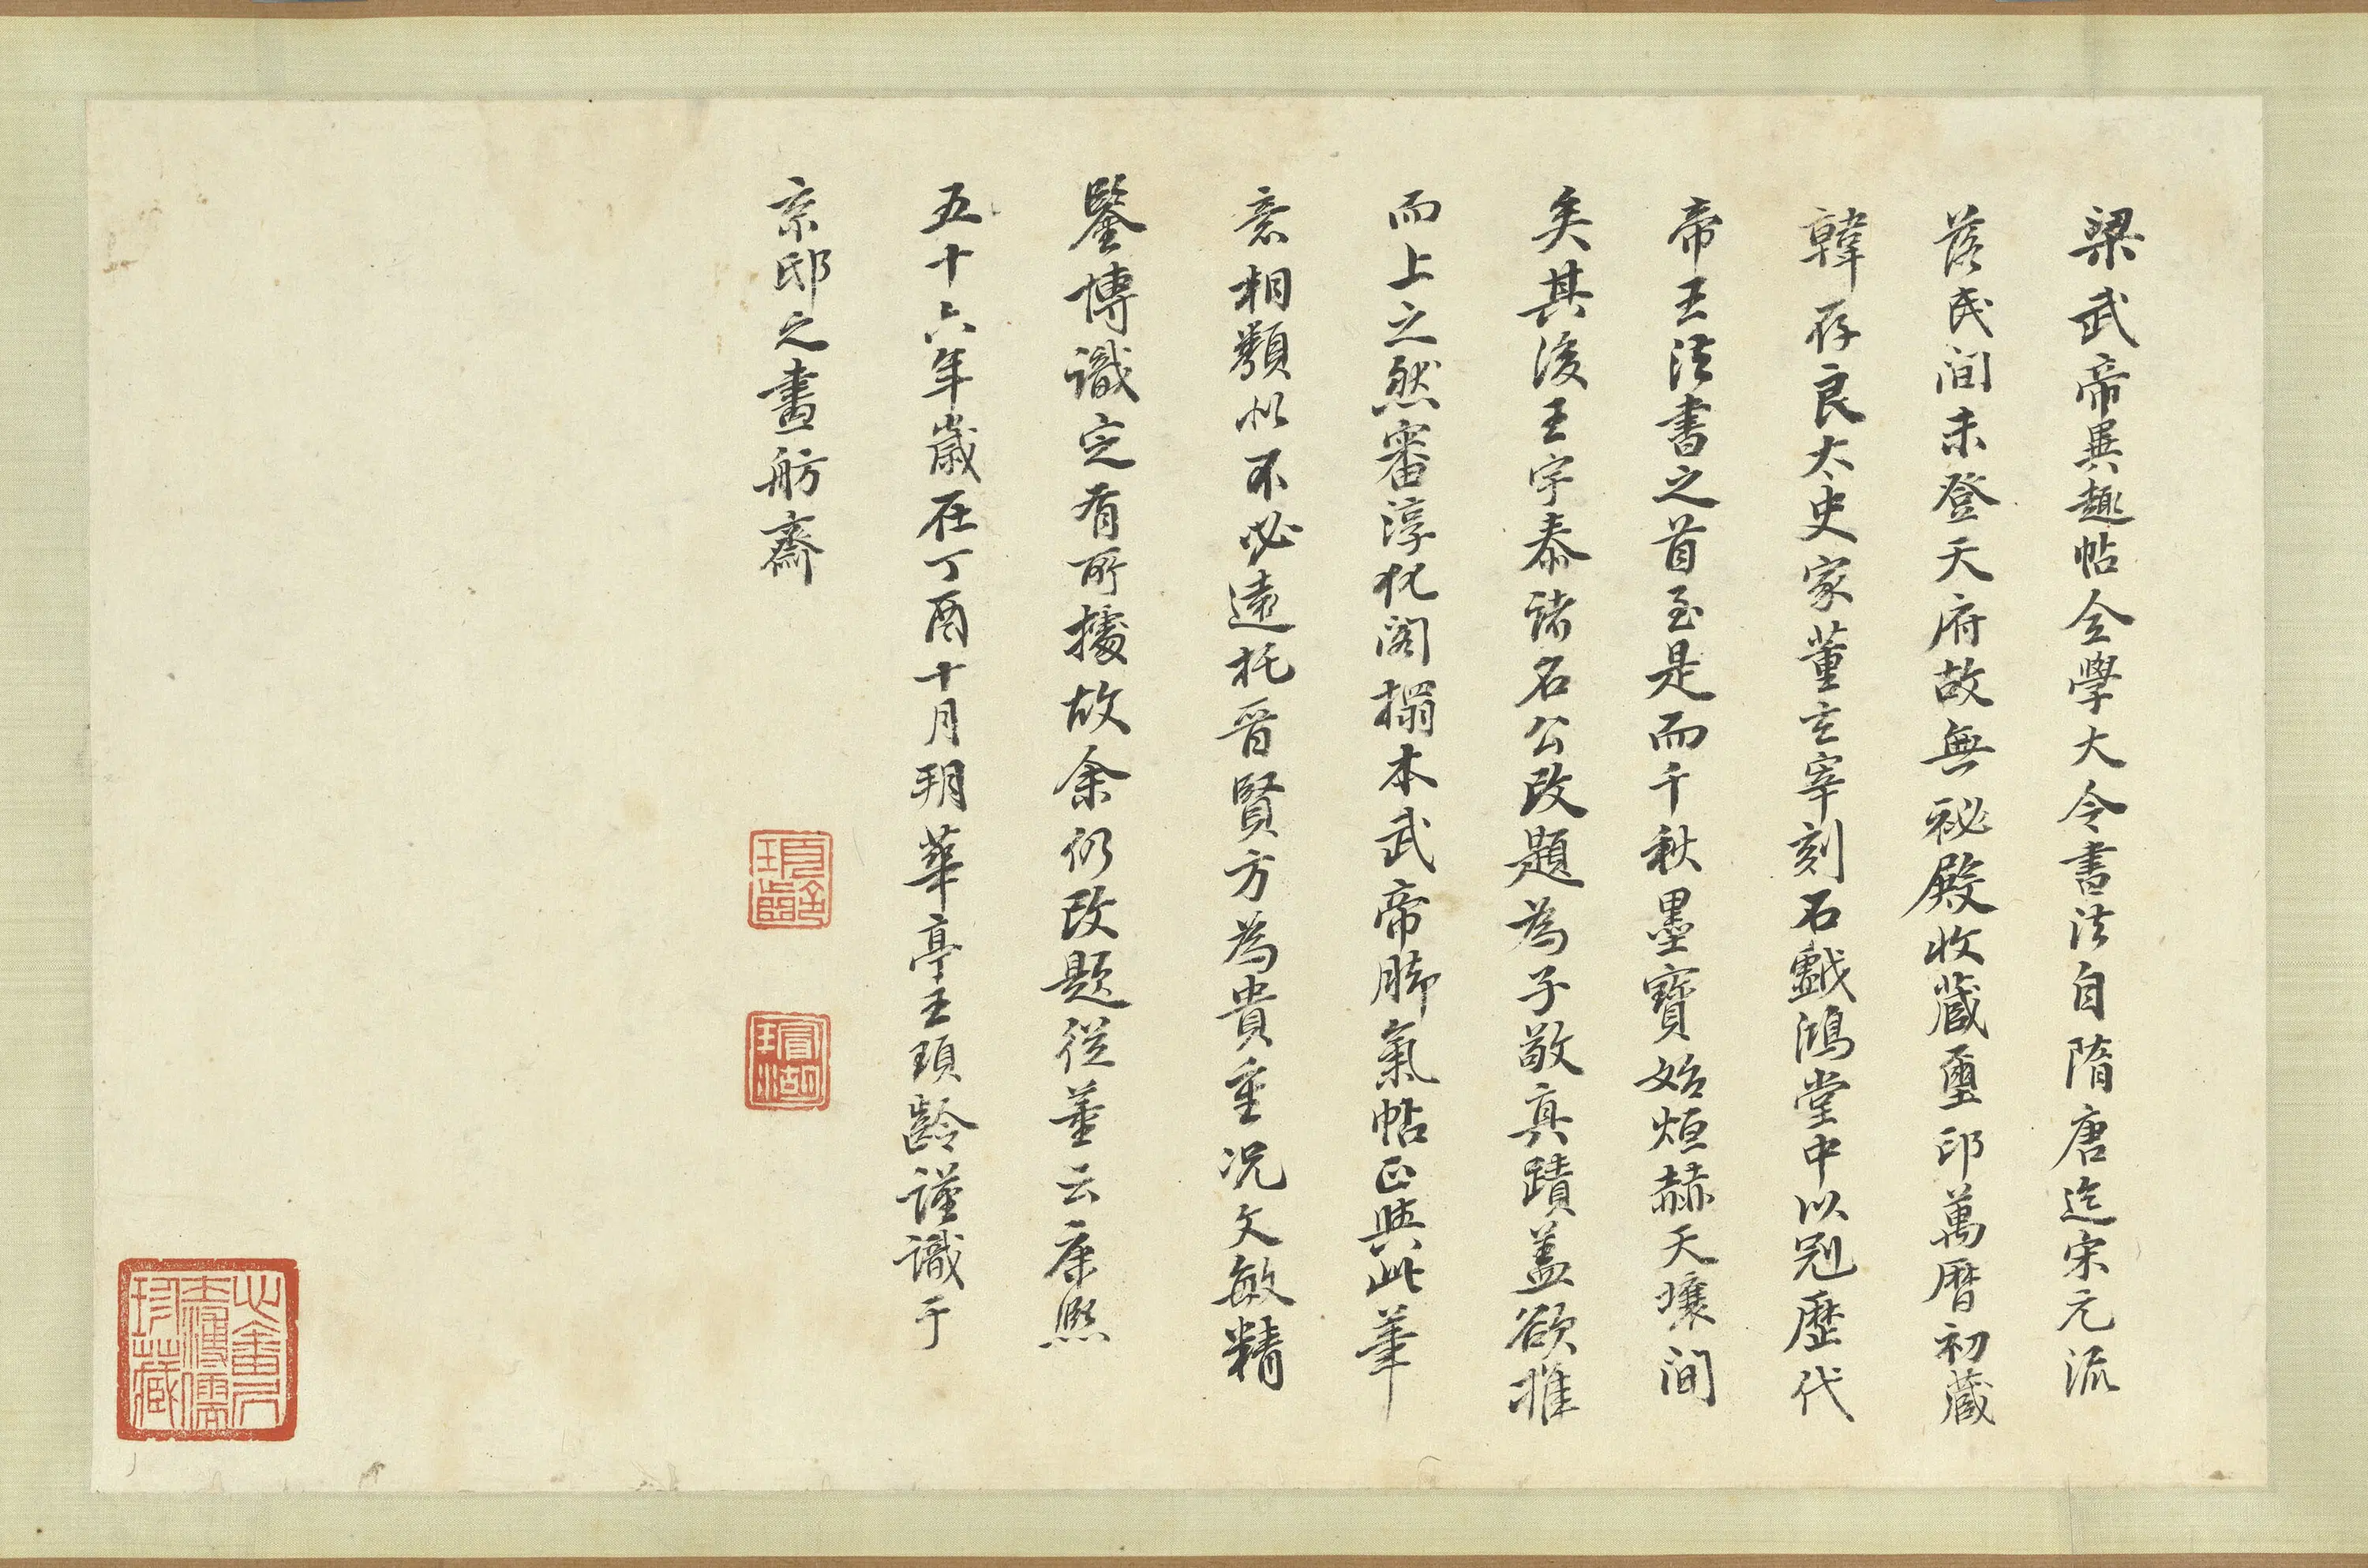 梁武帝異趣帖全學大令書法自隋唐迄宋元流
落民間未登天府故無祕殿收藏璽印萬曆初藏
韓存良太史家董玄宰刻石戲鴻堂中以冠歷代
帝王法書之首至是而千秋墨寶始烜赫天壤間
矣其後王宇泰諸名公改題為子敬真蹟蓋欲推
而上之然審淳化閣搨本武帝脚氣帖正與此筆
意相類似不必遠托晉賢方為貴重况文敏精
鑒博識定有所據故余仍改題從董云康熙
五十六年歲在丁酉十月朔華亭王頊齡謹識于
京邸之畫舫齋
頊齡
瑁湖
心畬
溥儒
珍藏